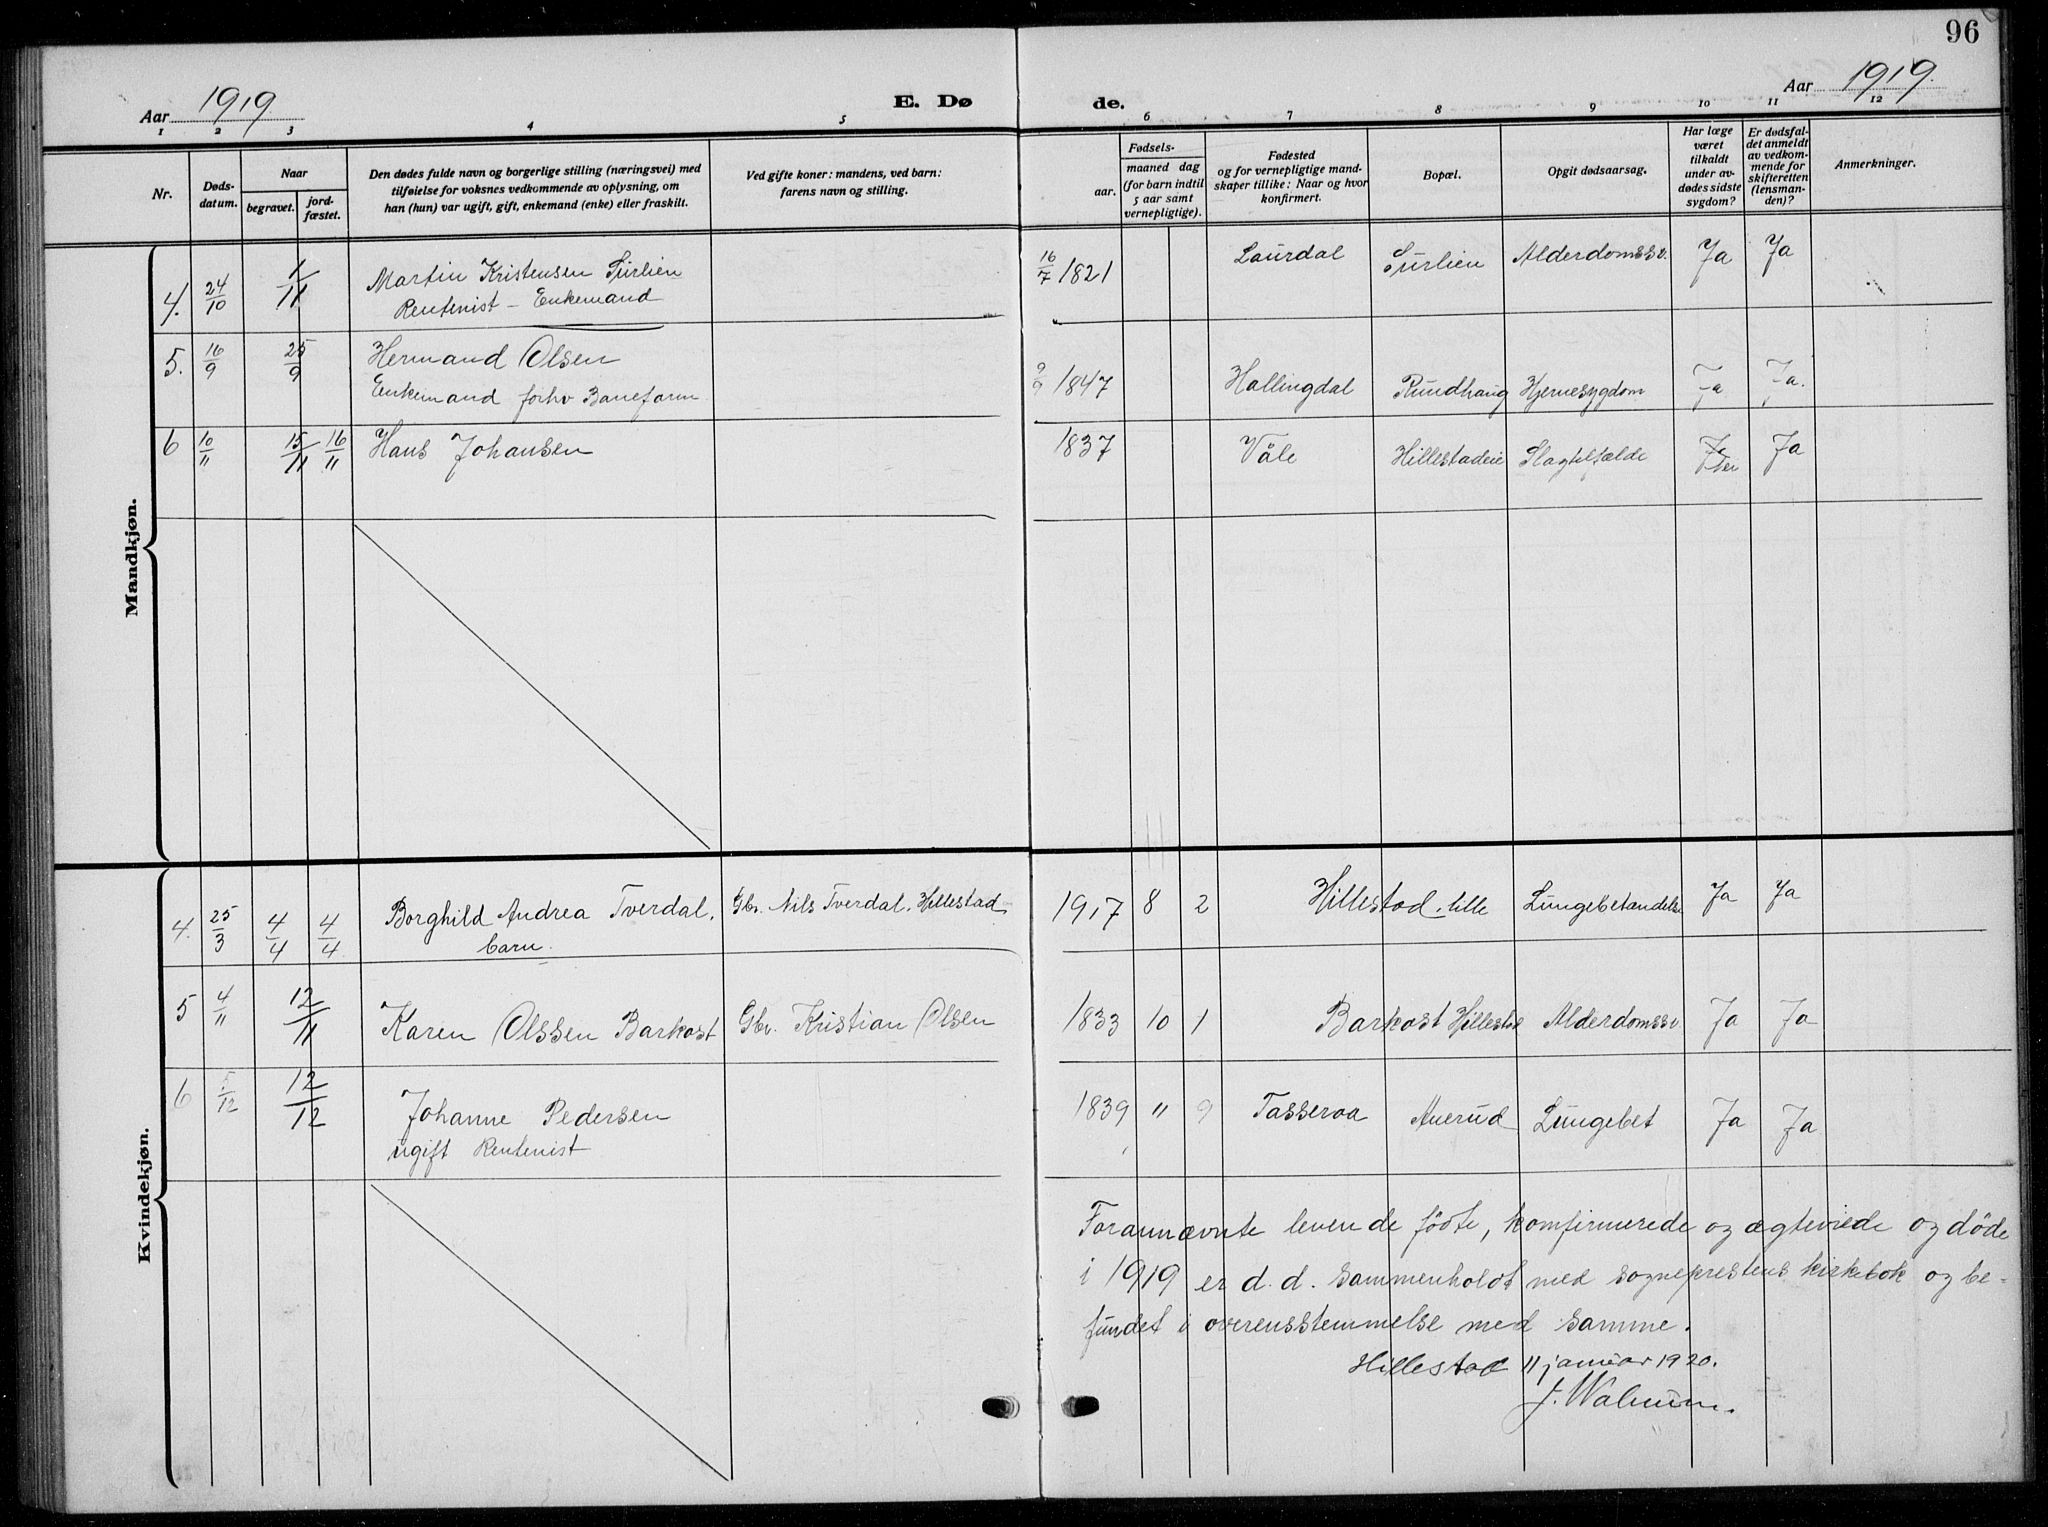 96
Aar 1919
E. Døde.
Aar 1919.
1 2 3 4 5 6 7 8 9 10 11 12
Nr.
Døds-
datum.
Naar
begravet.
jord-
fæstet.
Den dødes fulde navn og borgerlige stilling (næringsvei) med
tilføielse for voksnes vedkommende av oplysning, om
han (hun) var ugift, gift, enkemand (enke) eller fraskilt.
Ved gifte koner: mandens, ved barn:
farens navn og stilling.
Fødsels-
aar.
maaned dag
(for barn indtil
5 aar samt
vernepligtige).
Fødested
og for vernepligtige mand-
skaper tillike: Naar og hvor
konfirmert.
Bopæl.
Opgit dødsaarsag.
Har læge
været
tilkaldt
under av-
dødes sidste
sygdom?
Er dødsfal-
det anmeldt
av vedkom-
mende for
skifteretten
(lensman-
den)?
Anmerkninger.
Mandkjøn.
4. 24/10 1/11 Martin Kristensen Sürlien 16/7 1821 Laurdal Sürlien Alderdomssv. Ja Ja
Rentenist - Enkemand
5. 16/9 25/9 Hermand Olsen
Enkemand forhv Baneform 9/9 1847 Hallingdal Rundhaug Hjernesygdom Ja Ja.
6 10/11 15/11 16/11 Hans Johansen 1837 Våle Hillestadeie Slagtilfælde Ja
Kvindekjøn.
4. 25/3 4/4 4/4 Borghild Andrea Tverdal, Gbr. Nils Tverdal, Hillestad 1917 8 2 Hillestad, lille Lungebetændelse Ja Ja
barn.
5 4/11 12/11 Karen Olssen Barkost Gbr. Kristian Olsen 1833 10 1 Barkost Hillestad Alderdomssv Ja Ja
6 5/12 12/12 Johanne Pedersen 1839 " 9 Tasseroa Auerud Lungebet Ja Ja
ugift Rentenist
Forannævnte levende födte, komfirmerede og ægteviede og döde
i 1919 er d.d. sammenholdt med sogneprestens kirkebok og be-
fundet i overensstemmelse med samme.
Hillestad 11 januar 1920.
J. Walnum.